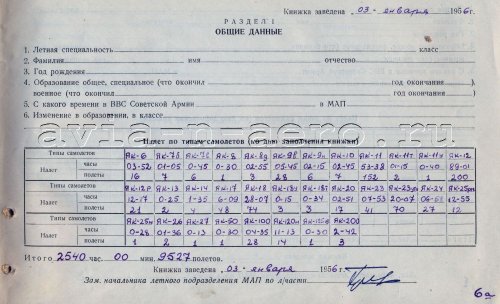 Книжка заведена 03 - января 1956 г.
РАЗДЕЛ I
ОБЩИЕ ДАННЫЕ
1. Летная специальность класс
2. Фамилия имя отчество
3. Год рождения
4. Образование общее, специальное (что окончил год окончания),
военное (что окончил год окончания)
5. С какого времени в ВВС Советской Армии в МАП
6. Изменение в образовании, в классе
avia-n-aero.ru
Налет по типам самолетов (ко дню заполнения книжки)
Типы самолетов Як-6 Як-7Б Як-8 Як-10 Як-11 Як-12
Налет часы 03-52 01-05 0-45 0-30 02-55 0-15 0-40 89-01
полеты 16 7 6 1 5 28 6 7 152 2 1 200
Типы самолетов Як-12Р Як-13 Як-14 Як-17 Як-18 Як-20 Як-23
Налет часы 12-17 0-25 1-35 6-09 28-07 0-15 0-34 02-51 07-53 20-07 12-55
полеты 21 2 4 48 74 3 3 17 41 70 27 12
Типы самолетов Як-25м Як-26 Як-27 Як-50 Як-100 Як-200
Налет часы 0-28 01-36 0-13 0-30 04-35 11-13 0-30 2-42
полеты 1 2 1 1 28 14 1 3
Итого 2540 час. 00 мин. 9527 полетов.
Книжка заведена 03 - января 1956 г.
Зам. начальника летного подразделения МАП по л/части
6а